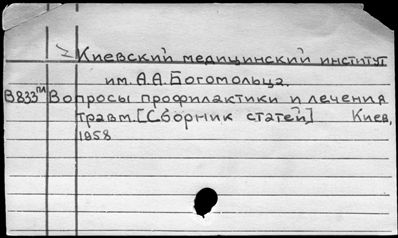 Киевский медицинский институт
им. А.А. Богомольца.
В833пл Вопросы профилактики и лечения
травм. [Сборник статей] Киев,
1958